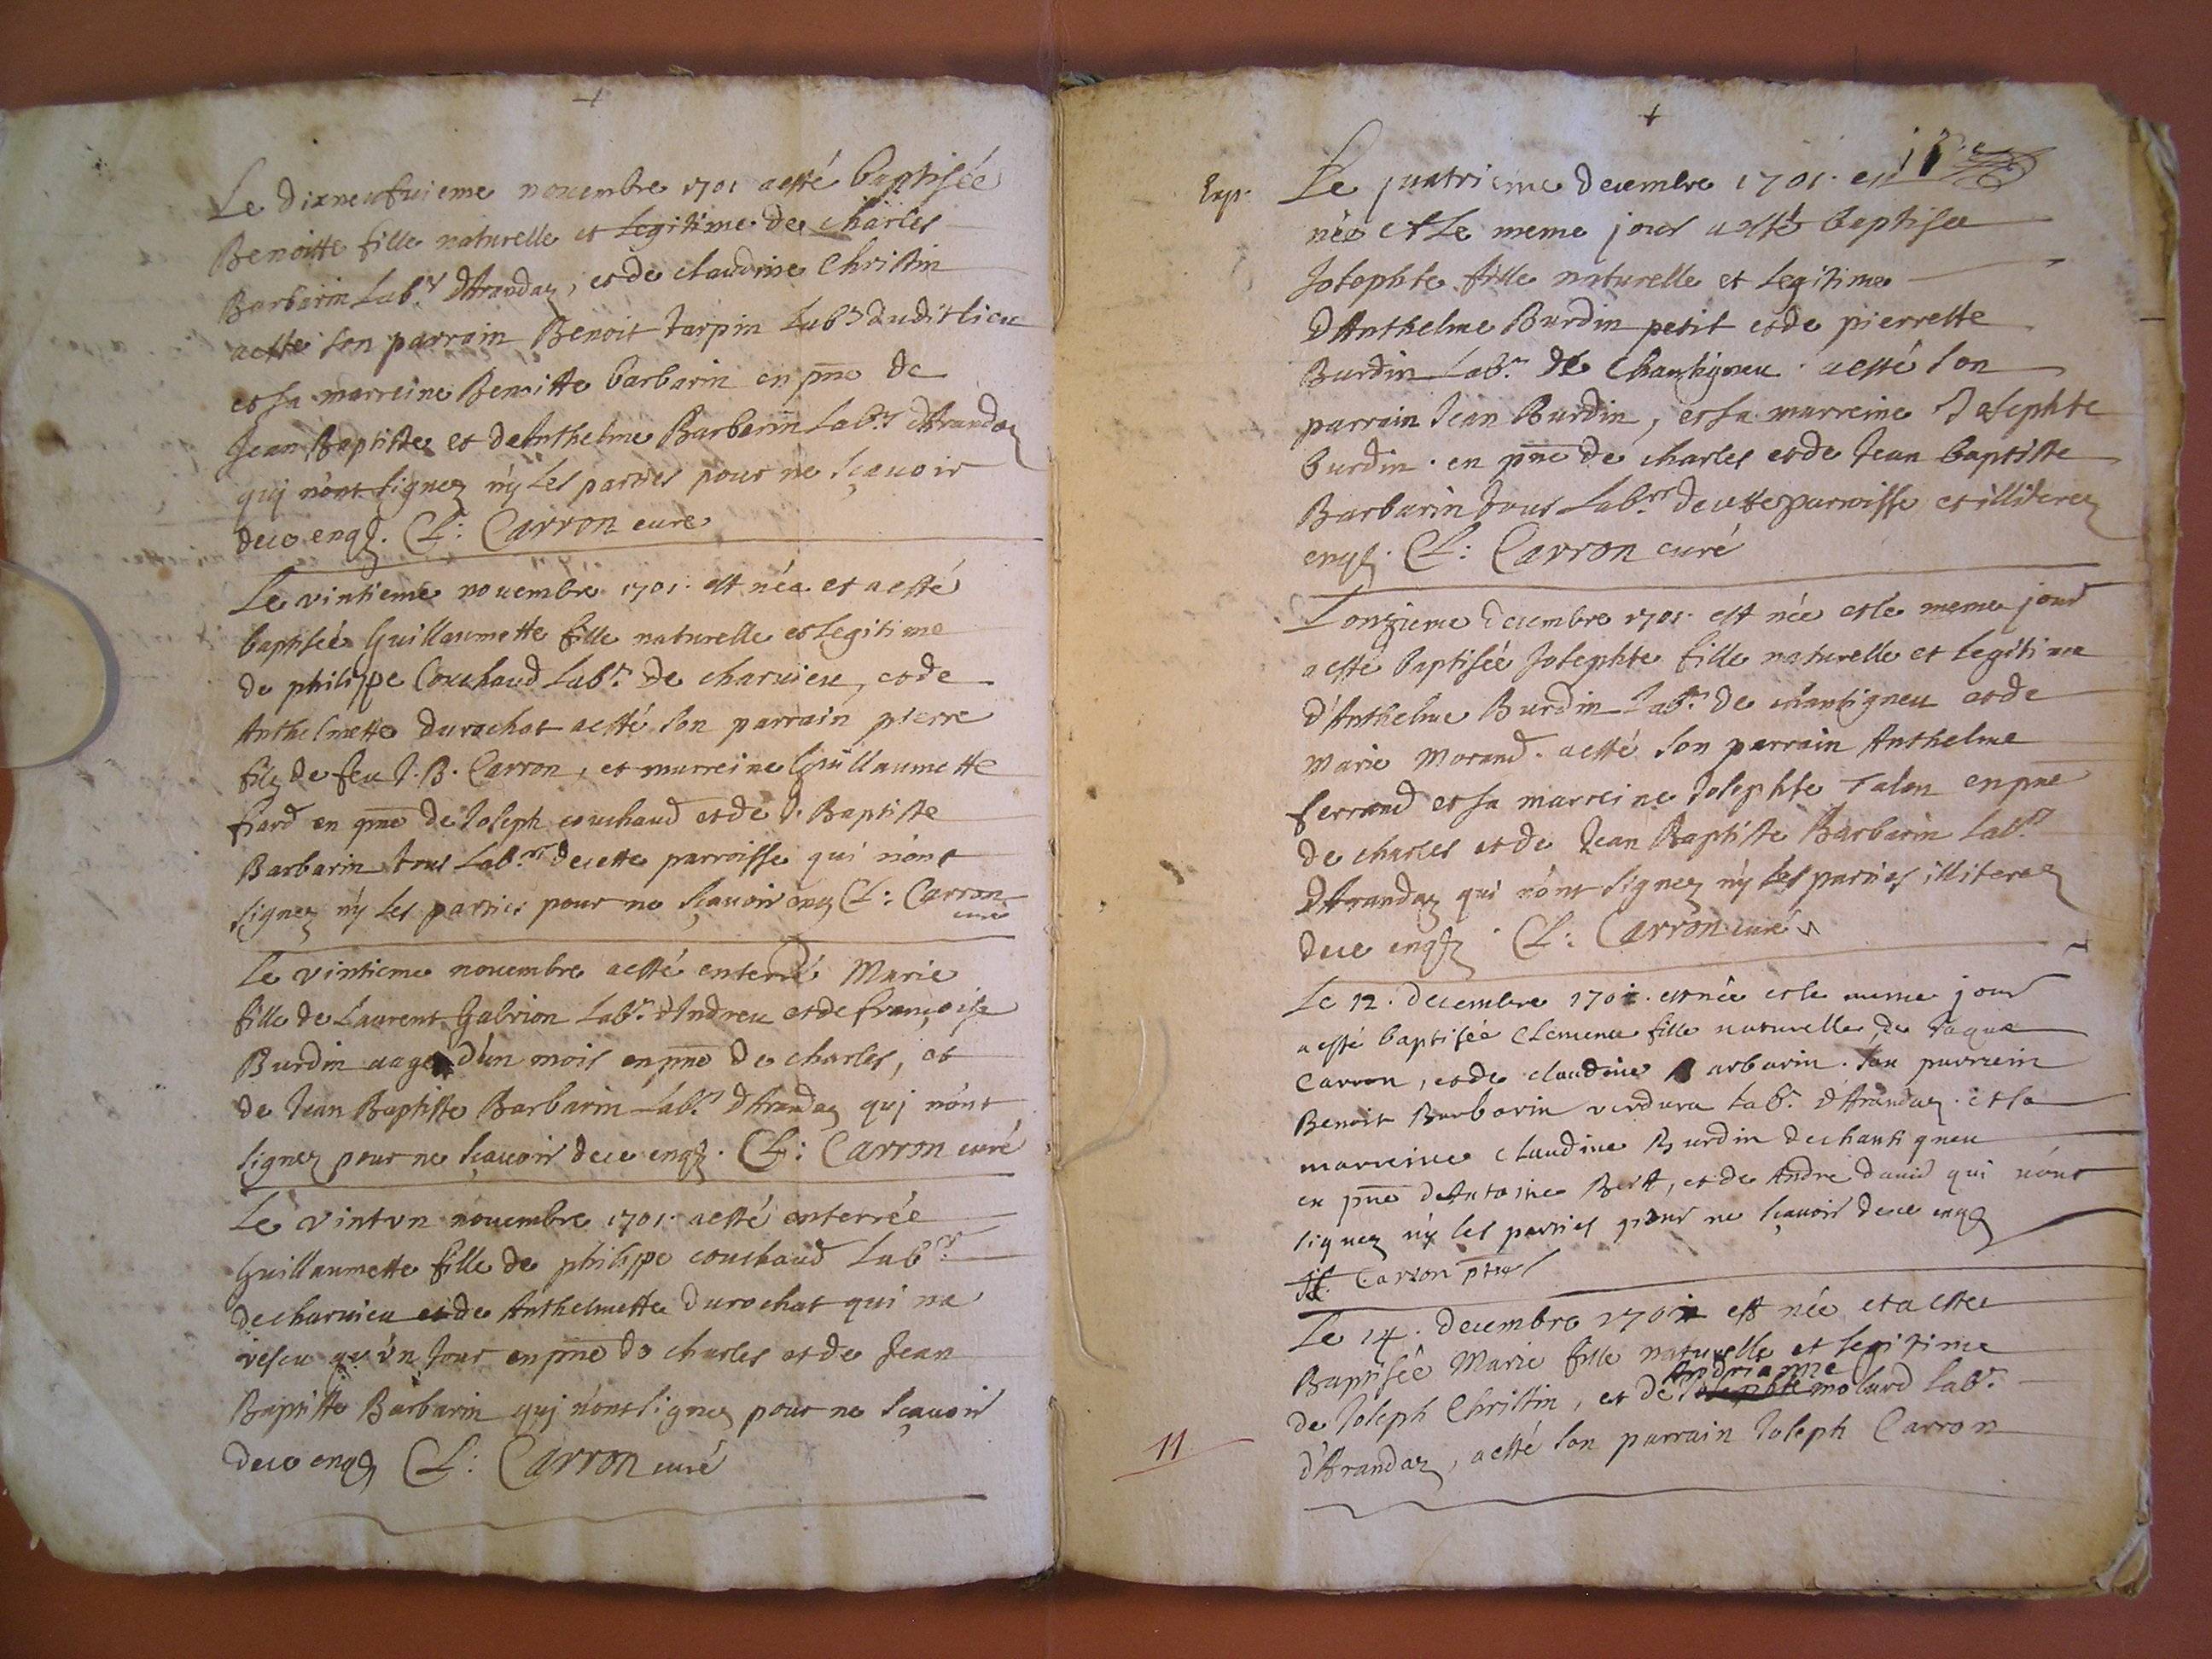 Le dixneufuieme nouembre 1701 aesté baptisée
Benoitte fille naturelle et Legitime de charles
Barbarin Lab.r d'Arandaz, et de claudine Christin
aesté son parrain Benoit Tarpin Lab.r duditlieu
et sa marreine Benoitte barbarin en pn̄ce de
Jean Baptiste et de Anthelme Barbarin Lab.rs d'Arandaz
quj n'ont signez n'y Les parties pour ne sçauoir
dece enq.s. Cl: Carron cure
Le vintieme nouembre 1701. est née et aesté
baptisée Guillaumette fille naturelle et Legitime
de philippe Couchaud Lab.r de charuieu, et de
Anthelmette durochat aesté son parrain pierre
filz de feu J. B. Carron, et marreine Guillaumette
fiard en pn̄ce de Joseph couchaud et de J. Baptiste
Barbarin tous Lab.rs decette parroisse qui n'ont
signez n'y Les parties pour ne sçauoir enq. Cl: Carron
curé
Le vintieme nouembre aesté enterré Marie
fille de Laurent Gabrion Lab.r d'Indreu et de françoise
Burdin aage d'un mois en pn̄ce de charles, et
de Jean Baptiste Barbarin Lab.rs d'Arandaz quj n'ont
signez pour ne sçauoir dece enq.s. Cl: Carron curé
Le vintvn nouembre 1701. aesté enterrée
Guillaumette fille de philippe couchaud Lab.r
de charuieu et de Anthelmette Durochat qui na
vescu qu'vn Jour en pn̄ce de charles et de Jean
Baptiste Barbarin quj n'ont signez pour ne sçauoir
dece enq.s Cl: Carron curé
Exp.
Le quatrieme decembre 1701. est
née et Le meme jour aesté baptisée
Josephte fille naturelle et Legitime
d'Anthelme Burdin petit et de pierrette
Burdin Lab.r de Chantigneu. aesté son
parrain Jean Burdin, et sa marreine Josephte
burdin. en pn̄ce de charles et de Jean baptiste
Barbarin tous Lab.rs decette parroisse et illiterez
enq.s. Cl: Carron curé
L'onzieme decembre 1701. est née et le meme jour
aesté baptisée Josephte fille naturelle et Legitime
d'Anthelme Burdin Lab.r de chantigneu et de
Marie Morand. aesté son parrain Anthelme
ferrand et sa marreine Josephte Talon en pn̄ce
de charles et de Jean Baptiste Barbarin Lab.rs
d'Arandaz qui n'ont signez n'y Les parties illiterez
dece enq.s. Cl: Carron curé
Le 12. decembre 1701. est née et le meme jour
aesté baptisée Clemence fille naturelle de Jaque
Carron, et de claudine Barbarin. son parrein
Benoit Barbarin verdura Lab.r d'Arandaz. et sa
marreine claudine Burdin de chantigneu
en pn̄ce d'Antoine Bert, et de Andre dauid qui n'ont
signez n'y les parties pour ne sçauoir dece enq.s
Carron ptre
Le 14. decembre 1701 est née et a estée
Baptisée Marie fille naturelle et legitime
de Joseph Christin, et de Andrianne molard Lab.r
11
d'Arandaz, aesté son parrain Joseph Carron